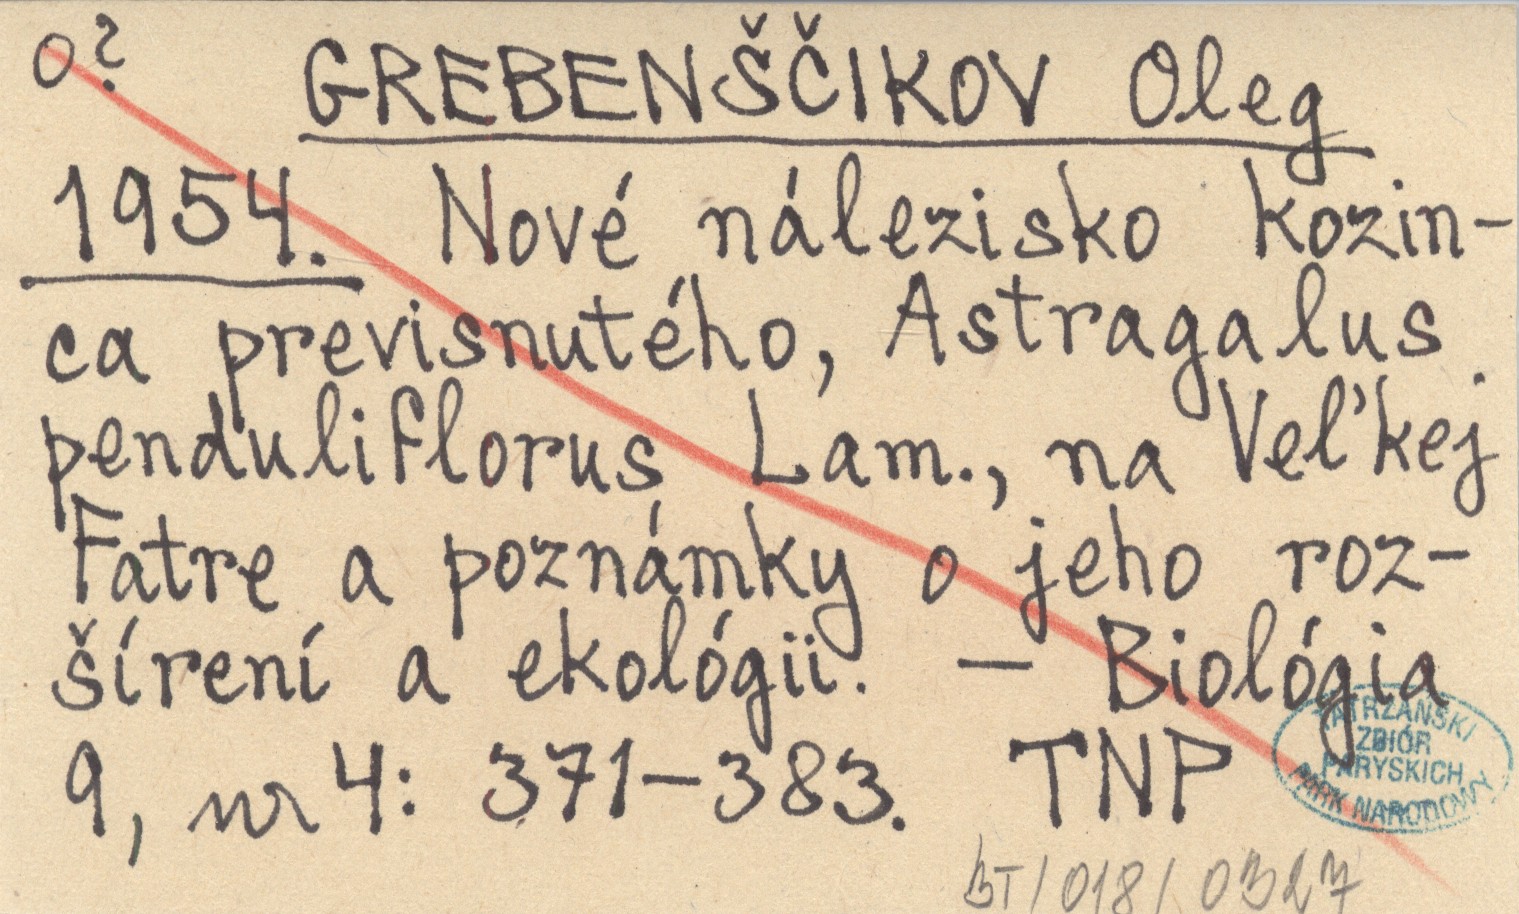 o? GREBENŠČIKOV Oleg
1954. Nové nálezisko kozin-
ca previsnutého, Astragalus
penduliflorus Lam., na Veľkej
Fatre a poznámky o jeho roz-
šírení a ekológii. — Biológia
9, nr 4: 371–383. TNP
TATRZAŃSKI
ZBIÓR
PARYSKICH
PARK NARODOWY
BT/018/0327